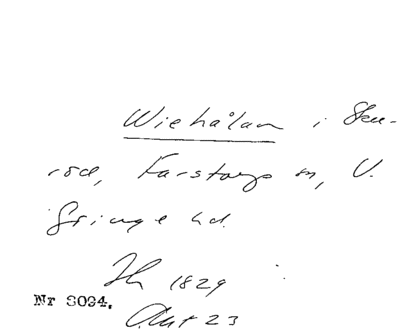 Wiehålan i Sku-
röd, Farstorps sn, V.
Göinge hd.
Ih 1829
Nr 8094. Akt 23